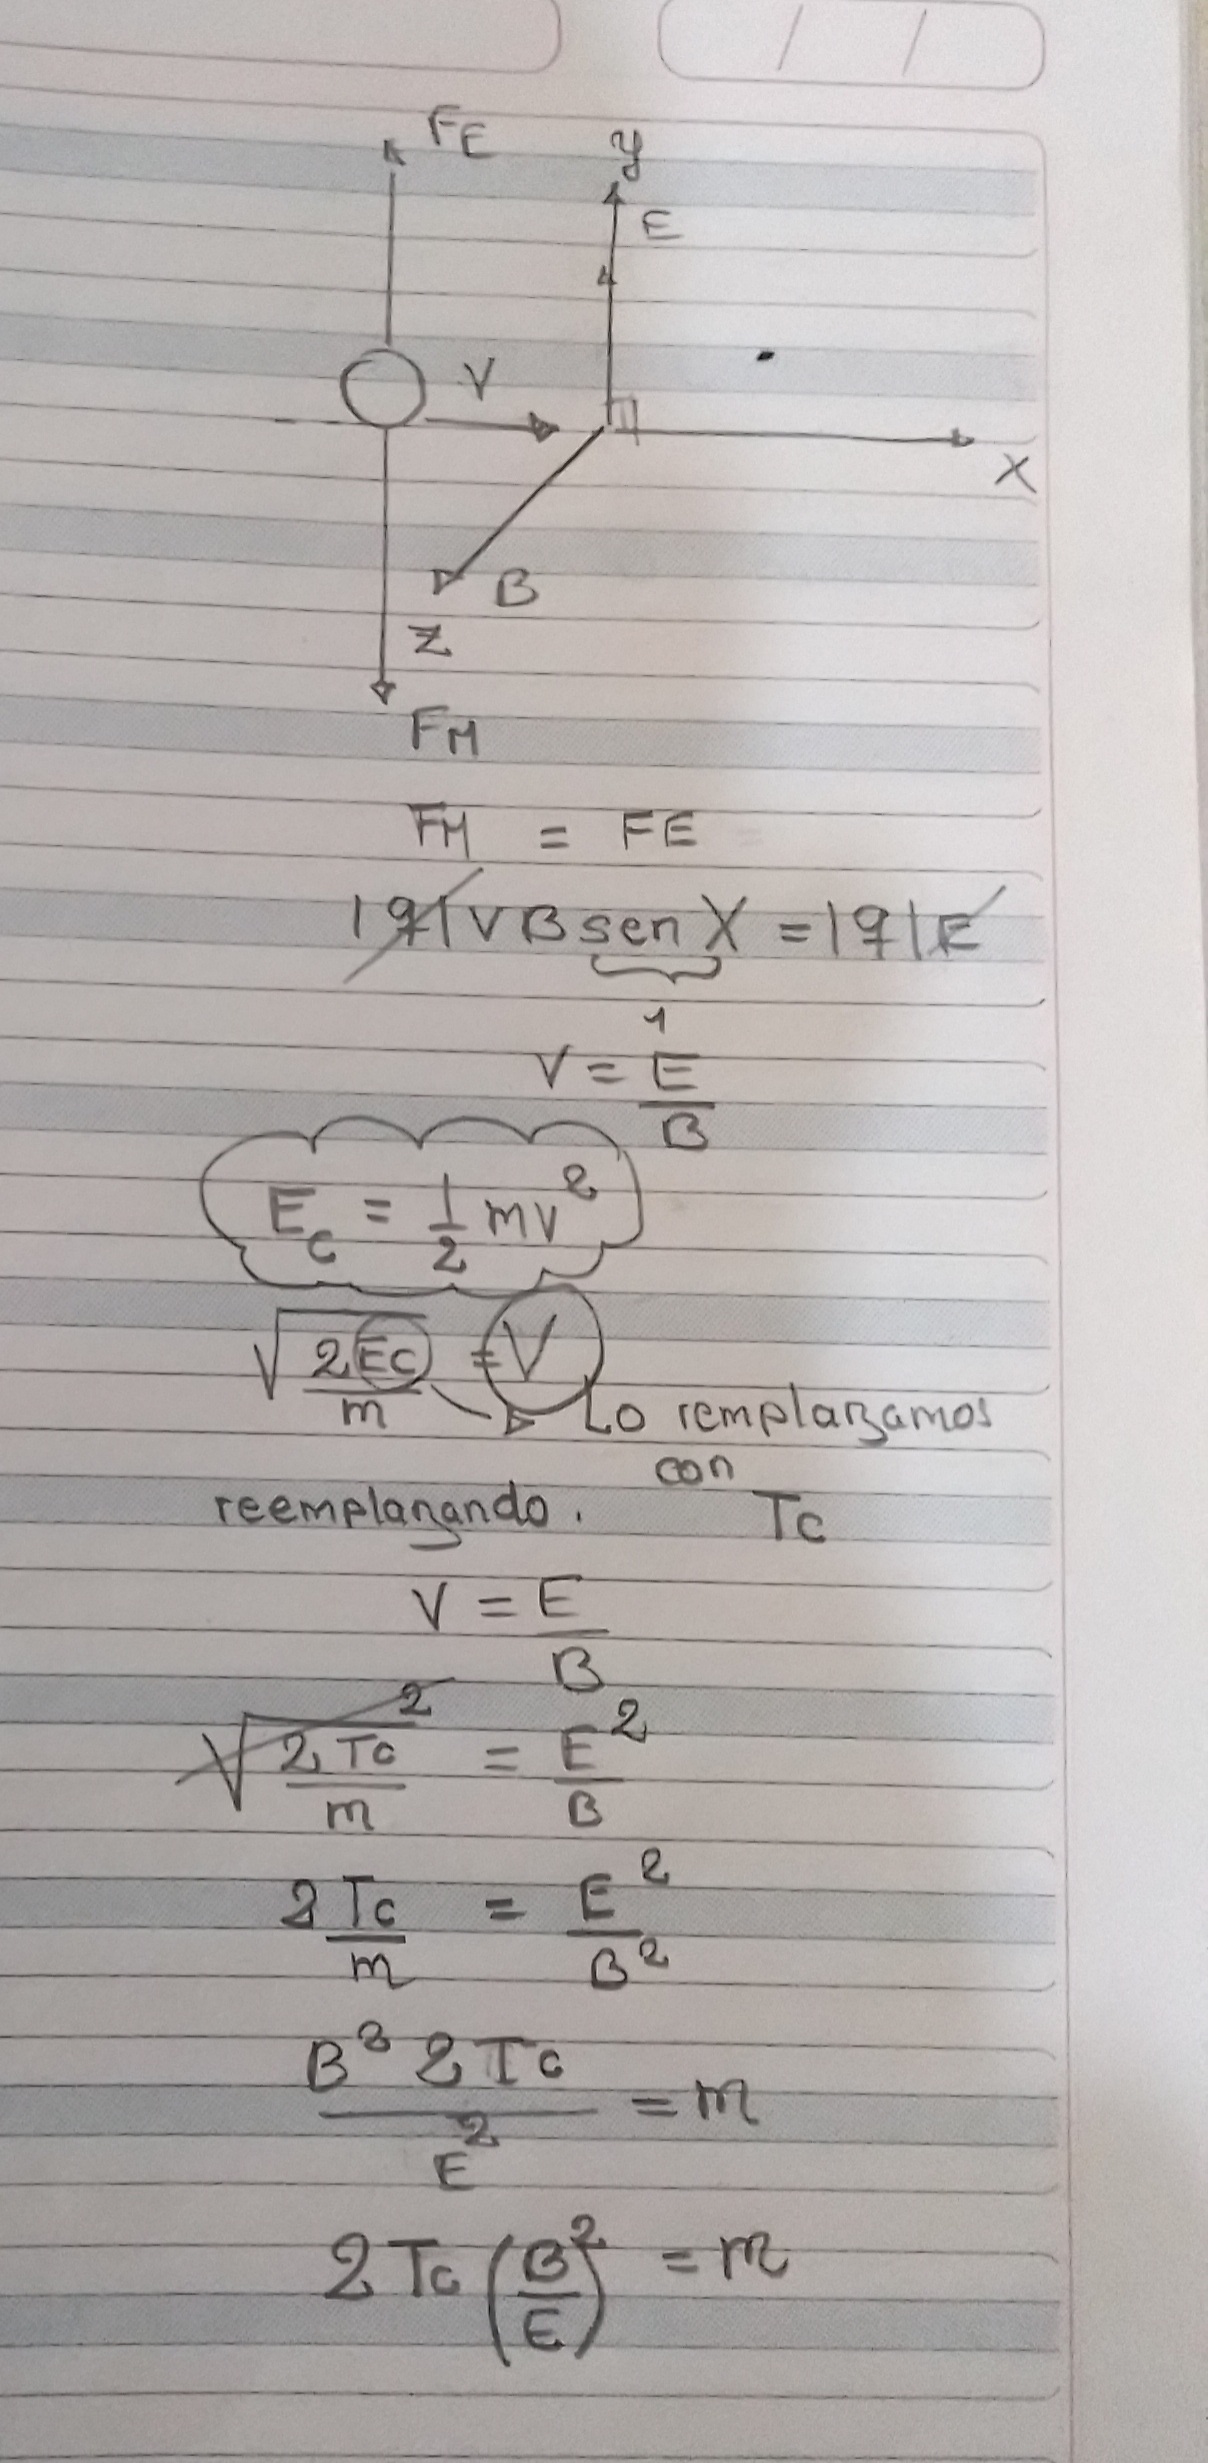 / /
FE
y
E
V
X
B
Z
FM
FM = FE
|q|VB sen X = |q|E
1
V = E/B
Ec = 1/2 mv²
√(2Ec/m) = V
Lo remplazamos
con
reemplazando. Tc
V = E/B
√(2Tc/m)² = E/B²
2Tc/m = E²/B²
B² 2Tc/E² = m
2Tc (B/E)² = m